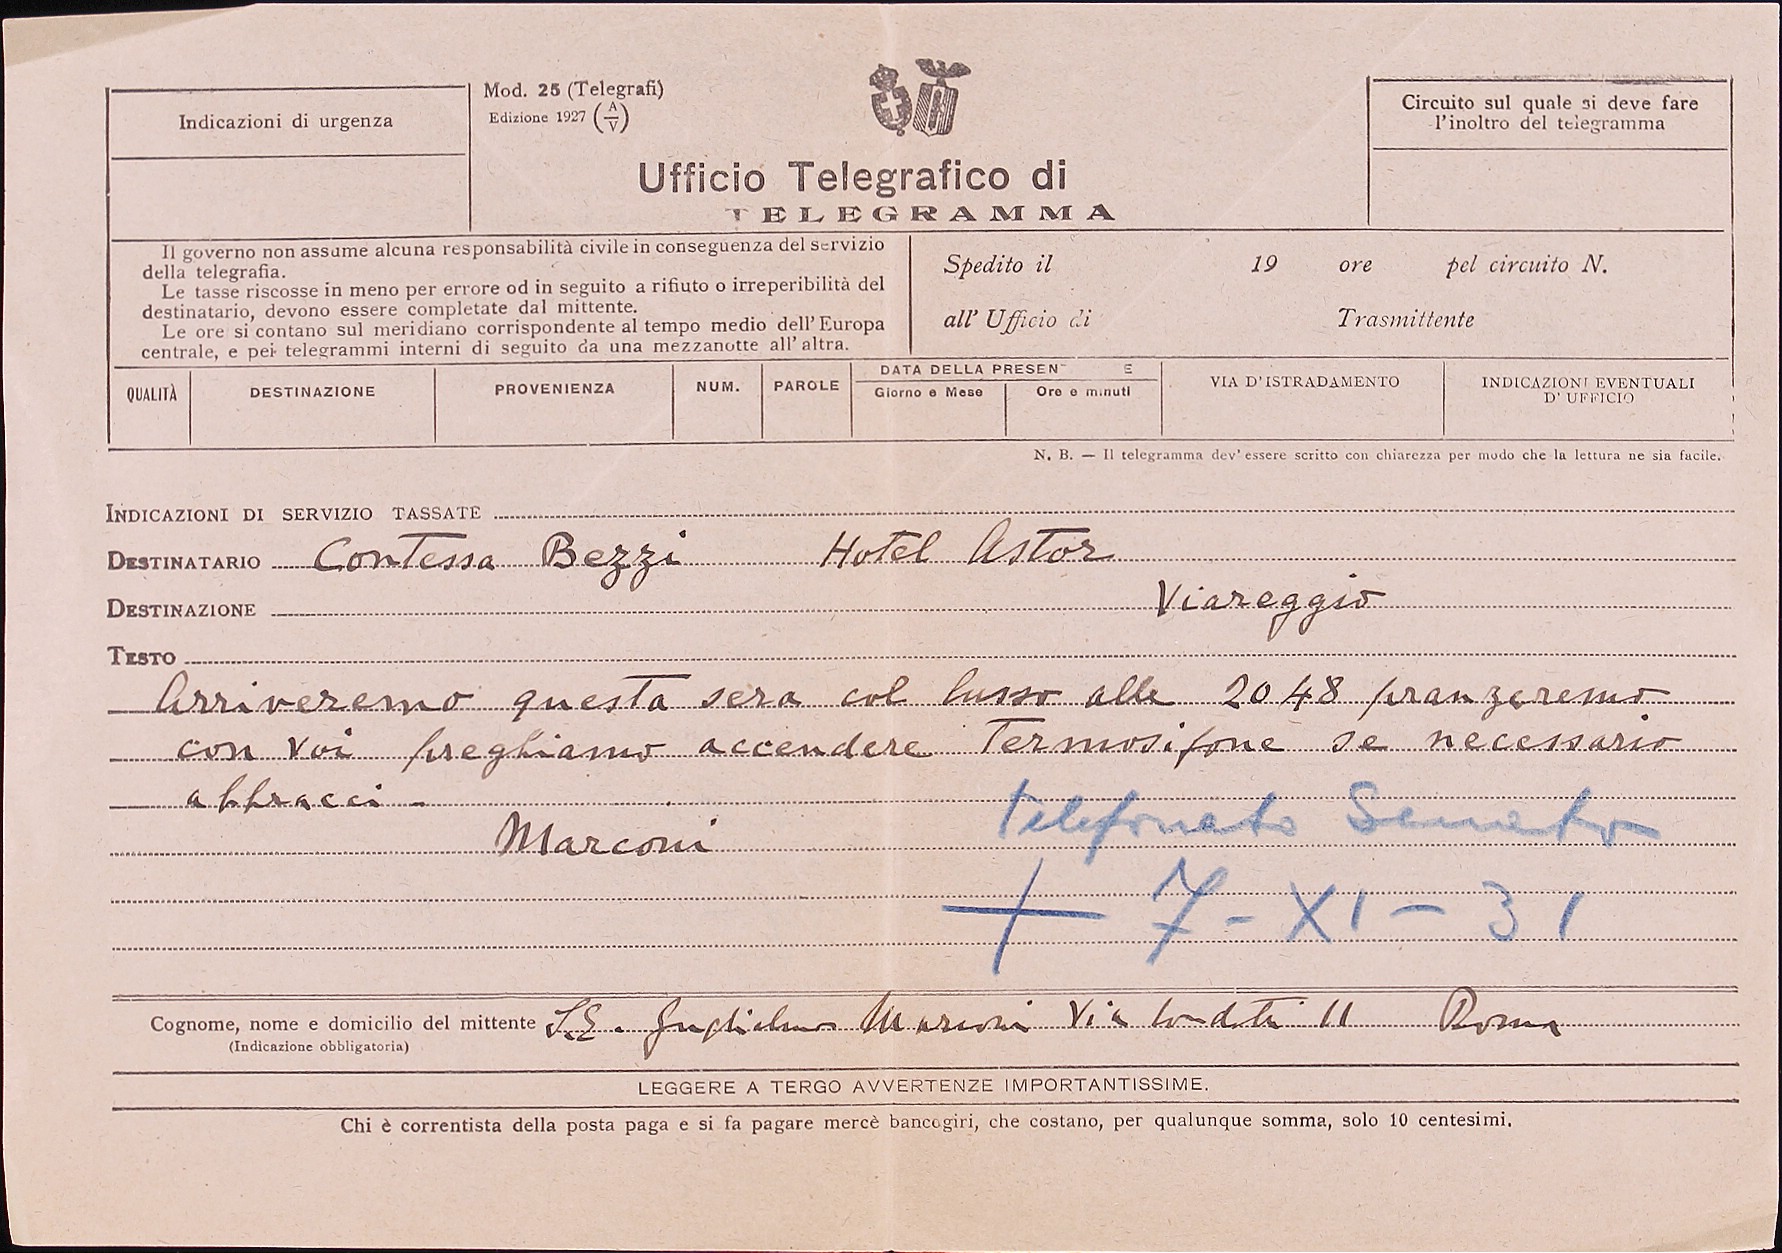 Indicazioni di urgenza
Mod. 25 (Telegrafi)
Edizione 1927 (A/V)
Circuito sul quale si deve fare
l'inoltro del telegramma
Ufficio Telegrafico di
TELEGRAMMA
Il governo non assume alcuna responsabilità civile in conseguenza del servizio
della telegrafia.
Le tasse riscosse in meno per errore od in seguito a rifiuto o irreperibilità del
destinatario, devono essere completate dal mittente.
Le ore si contano sul meridiano corrispondente al tempo medio dell'Europa
centrale, e pei telegrammi interni di seguito da una mezzanotte all'altra.
Spedito il 19 ore pel circuito N.
all' Ufficio di Trasmittente
QUALITÀ
DESTINAZIONE
PROVENIENZA
NUM.
PAROLE
DATA DELLA PRESEN E
Giorno e Mese
Ore e minuti
VIA D'ISTRADAMENTO
INDICAZIONI EVENTUALI
D' UFFICIO
N. B. — Il telegramma dev' essere scritto con chiarezza per modo che la lettura ne sia facile.
INDICAZIONI DI SERVIZIO TASSATE
DESTINATARIO Contessa Bezzi Hotel Astor
DESTINAZIONE Viareggio
TESTO
Arriveremo questa sera col lusso alle 2048 pranzeremo
con voi preghiamo accendere Termosifone se necessario
abbracci -
Marconi
telefonato Senato
+ 7 - XI - 31
Cognome, nome e domicilio del mittente S.E. Guglielmo Marconi Via Condotti 11 Roma
(Indicazione obbligatoria)
LEGGERE A TERGO AVVERTENZE IMPORTANTISSIME.
Chi è correntista della posta paga e si fa pagare mercè bancogiri, che costano, per qualunque somma, solo 10 centesimi.